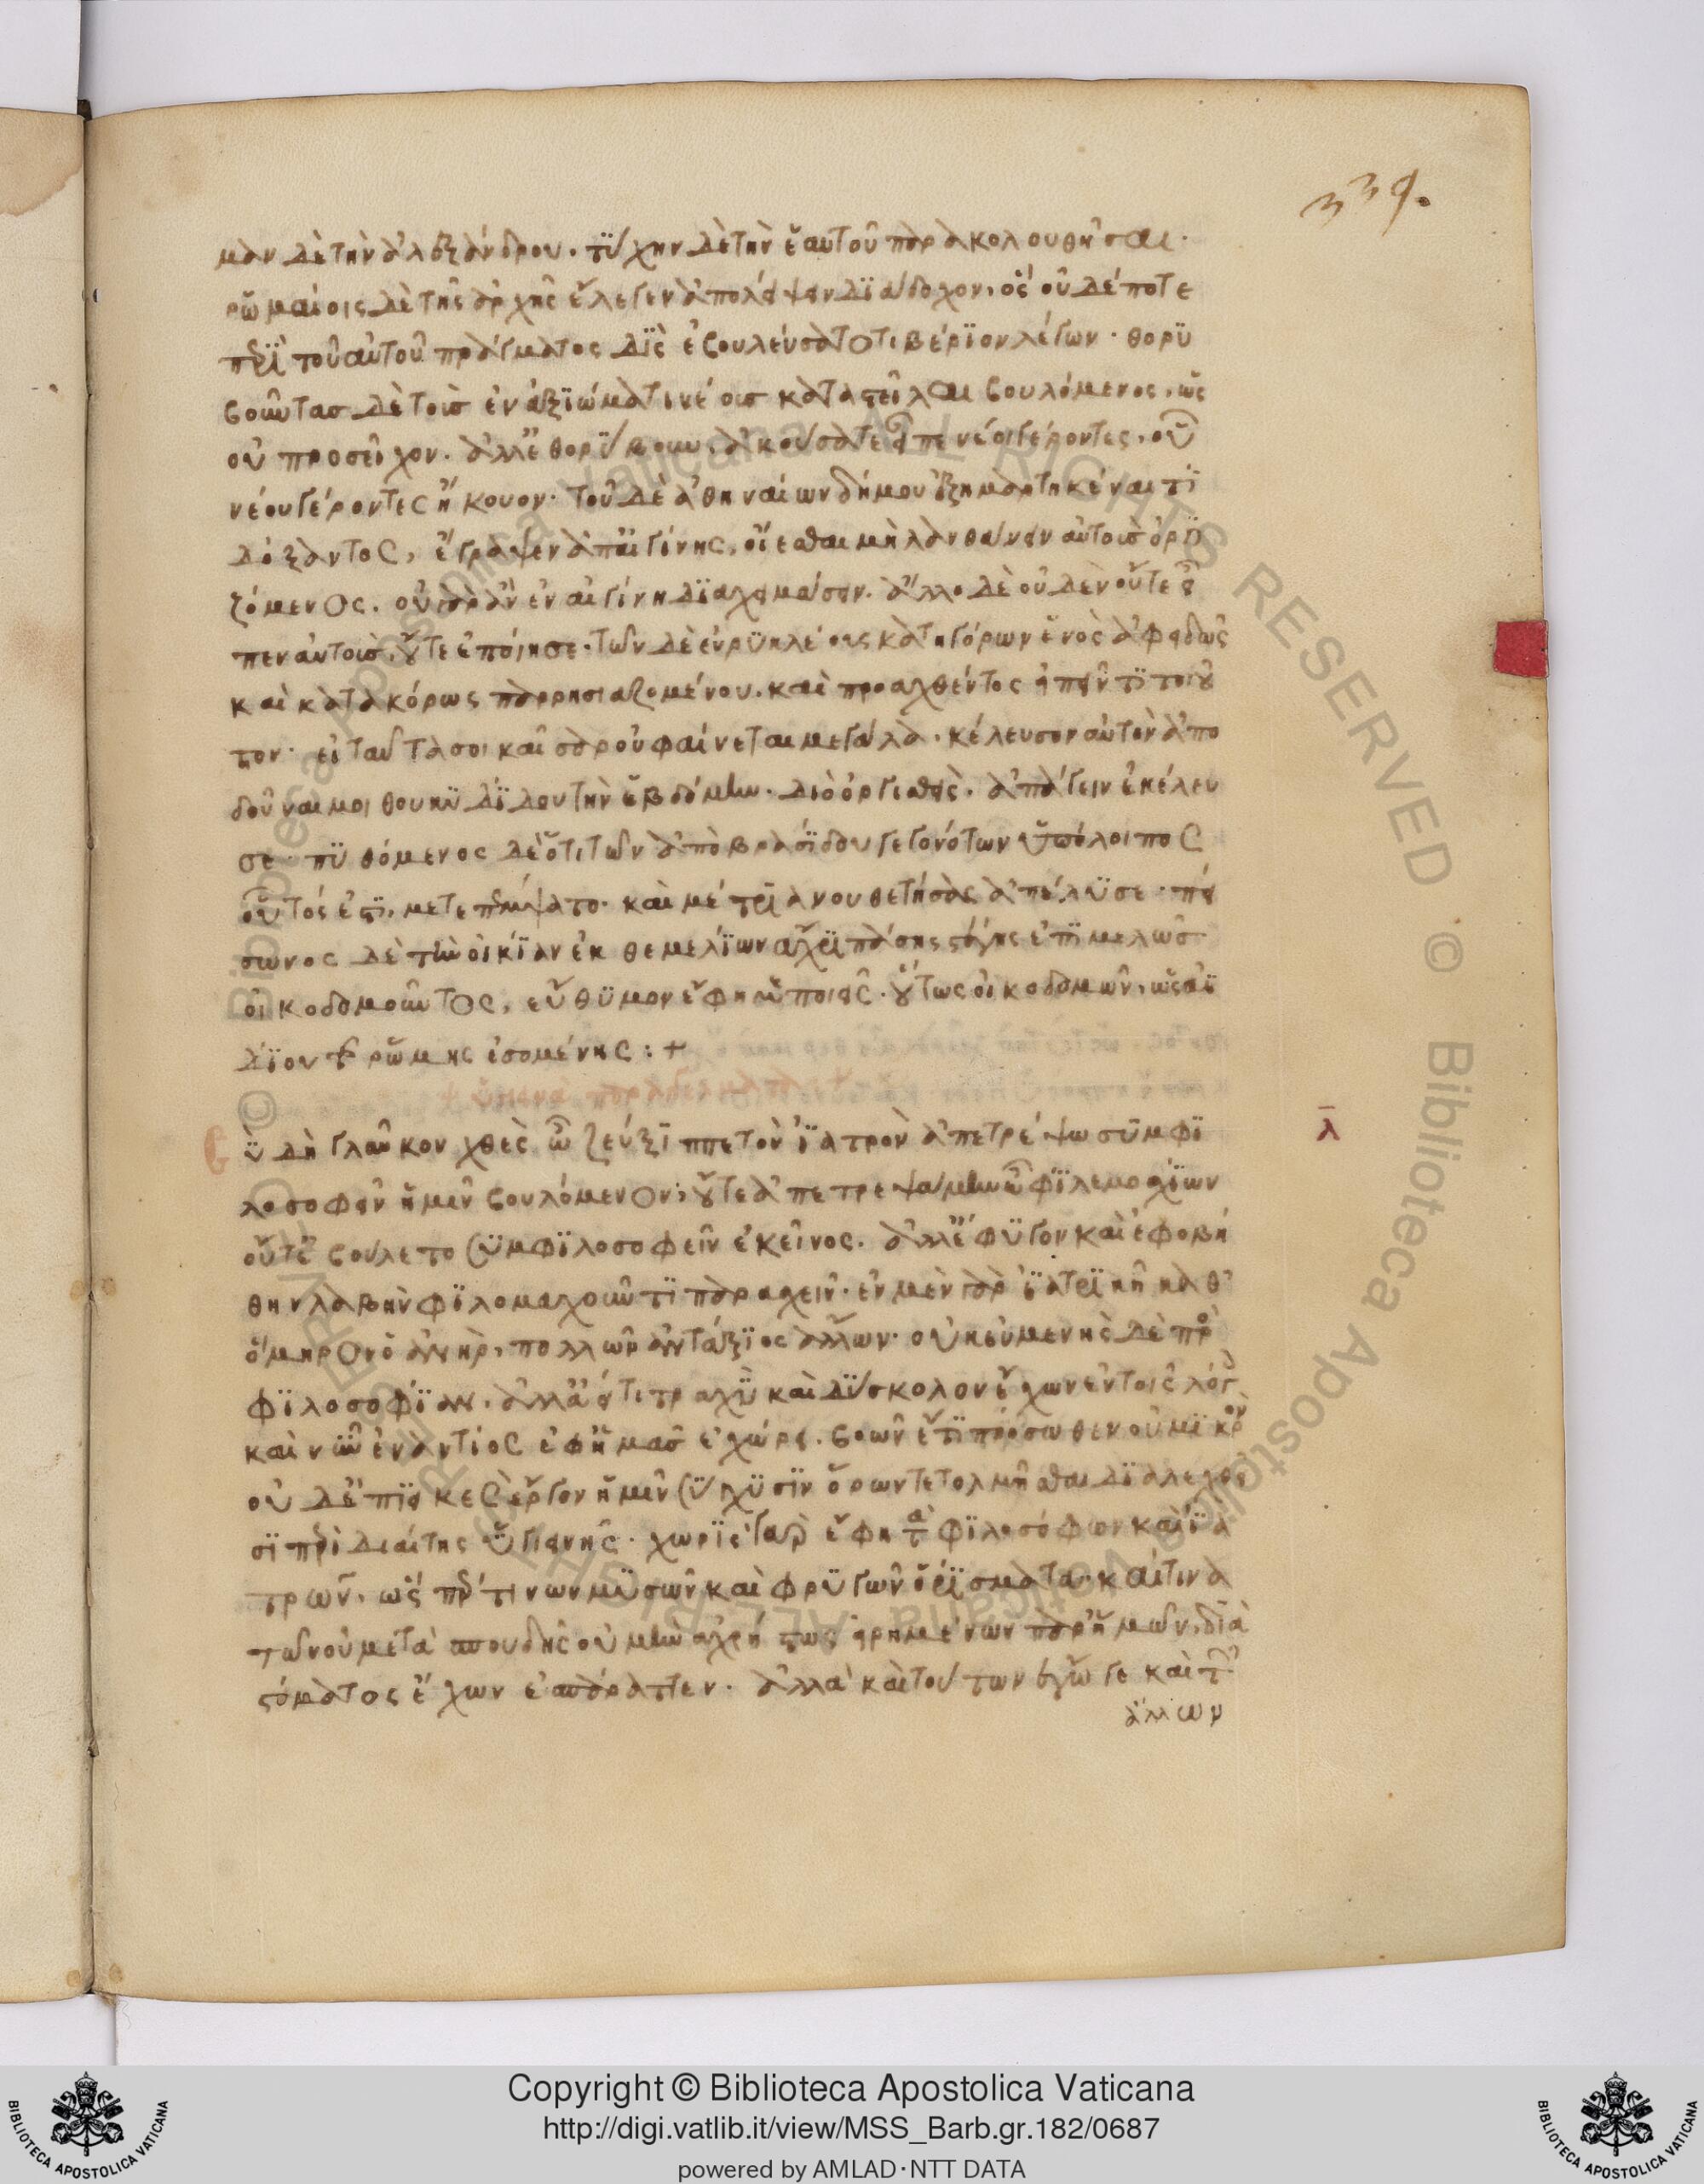 339.
μαν δὲ τὴν ἀλεξάνδρου. τύχην δὲ τὴν ἑαυτοῦ παρακολουθῆσαι.
ῥωμαίοις δὲ τῆς ἀρχῆς ἔλεγεν ἀπολείψειν διάδοχον, ὃς οὐδέποτε
περὶ τοῦ αὐτοῦ πράγματος δὶς ἐβουλεύσατο τιβέριον λέγων. θορυ
βοῦντας δὲ τοὺς ἐν ἀξιώματι νέους καταστεῖλαι βουλόμενος, ὡς
οὐ προσεῖχον. ἀλλ' ἐθορύβουν, ἀκούσατε εἶπε νέοι γέροντος, οὗ
νέου γέροντες ἤκουον. τοῦ δὲ ἀθηναίων δήμου ἐξημαρτηκέναι τὶ
δόξαντος, ἔγραψεν ἀπ' αἰγίνης, οἴεσθαι μὴ λανθάνειν αὐτοὺς ὀργι
ζόμενος. οὐ γὰρ ἂν ἐν αἰγίνη διαχειμάσειν. ἄλλο δὲ οὐδὲν οὔτε εἶ
πεν αὐτοὺς, οὔτε ἐποίησε. τῶν δὲ εὐρυκλέους κατηγόρων ἑνὸς ἀφειδῶς
καὶ κατακόρως παρρησιαζομένου. καὶ προαχθέντος εἰπεῖν τὶ τοιοῦ
τον. εἰ ταῦτά σοι καῖσαρ οὐ φαίνεται μεγάλα. κέλευσον αὐτὸν ἀπο
δοῦναι μοι θουκυδίδου τὴν ἑβδόμην. διὸ ὀργισθεὶς. ἀπάγειν ἐκέλευ
σε. πυθόμενος δὲ ὅτι τῶν ἀπὸ βρασίδου γεγονότων ὑπόλοιπος
οὗτός ἐστι. μετεπέμψατο. καὶ μέτρια νουθετήσας ἀπέλυσε. πεί
σωνος δὲ τὴν οἰκίαν ἐκ θεμελίων ἄχρι πάσης στέγης ἐπιμελῶς
οἰκοδομοῦντος, εὔθυμον ἔφη με ποιεῖς. οὕτως οἰκοδομῶν, ὡς ἀϊ
δίου τῆς ῥώμης ἐσομένης: +
ὑγιεινὰ παραγγέλματα
λ
ὺ δὴ γλαῦκον χθὲς ὦ ζεύξιππε τὸν ἰατρὸν ἀπετρέψω συμφι
λοσοφεῖν ἡμῖν βουλόμενον; οὔτε ἀπετρεψάμην ὦ φίλε μοσχίων
οὔτε ἐβούλετο συμφιλοσοφεῖν ἐκεῖνος. ἀλλ' ἔφυγον καὶ ἐφοβή
θην λαβὴν φιλομαχοῦντι παρασχεῖν. ἐν μὲν γὰρ ἰατρικῇ καθ'
ὅμηρον ὁ ἀνὴρ, πολλῶν ἀντάξιος ἄλλων. οὐκ εὐμενὴς δὲ πρὸς
φιλοσοφίαν. ἀλλὰ ἀεί τι τραχὺ καὶ δύσκολον ἔχων ἐν τοῖς λόγοις
καὶ νῦν ἐναντίος ἐφ' ἡμᾶς ἐχώρει. βοῶν ἔτι πρόσωθεν οὐ μικρὸν
οὐδ' ἐπιεικὲς ἔργον ἡμῖν σύγχυσιν ὅρων τετολμῆσθαι διαλεχθεῖ
σι περὶ διαίτης ὑγιεινῆς. χωρὶς γὰρ ἔφη τὰ φιλοσόφων καὶ ἰα
τρῶν. ὥσπερ τινων μυσῶν καὶ φρυγῶν ὁρίσματα. καί τινα
τῶν οὐ μετὰ σπουδῆς οὐ μὴν ἀχρήστως εἰρημένων παρ' ἡμῶν, διὰ
στόματος ἔχων ἐσπάραττεν. ἀλλὰ καὶ τούτων ἐγὼ γε καὶ τῶν
ἄλλων
Copyright © Biblioteca Apostolica Vaticana
http://digi.vatlib.it/view/MSS_Barb.gr.182/0687
powered by AMLAD·NTT DATA
BIBLIOTECA APOSTOLICA VATICANA
BIBLIOTECA APOSTOLICA VATICANA